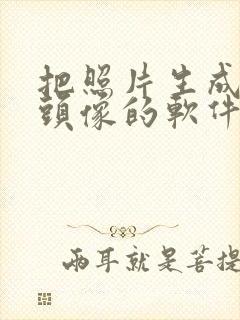 把照片生成
頭像的軟件
兩耳就是菩提